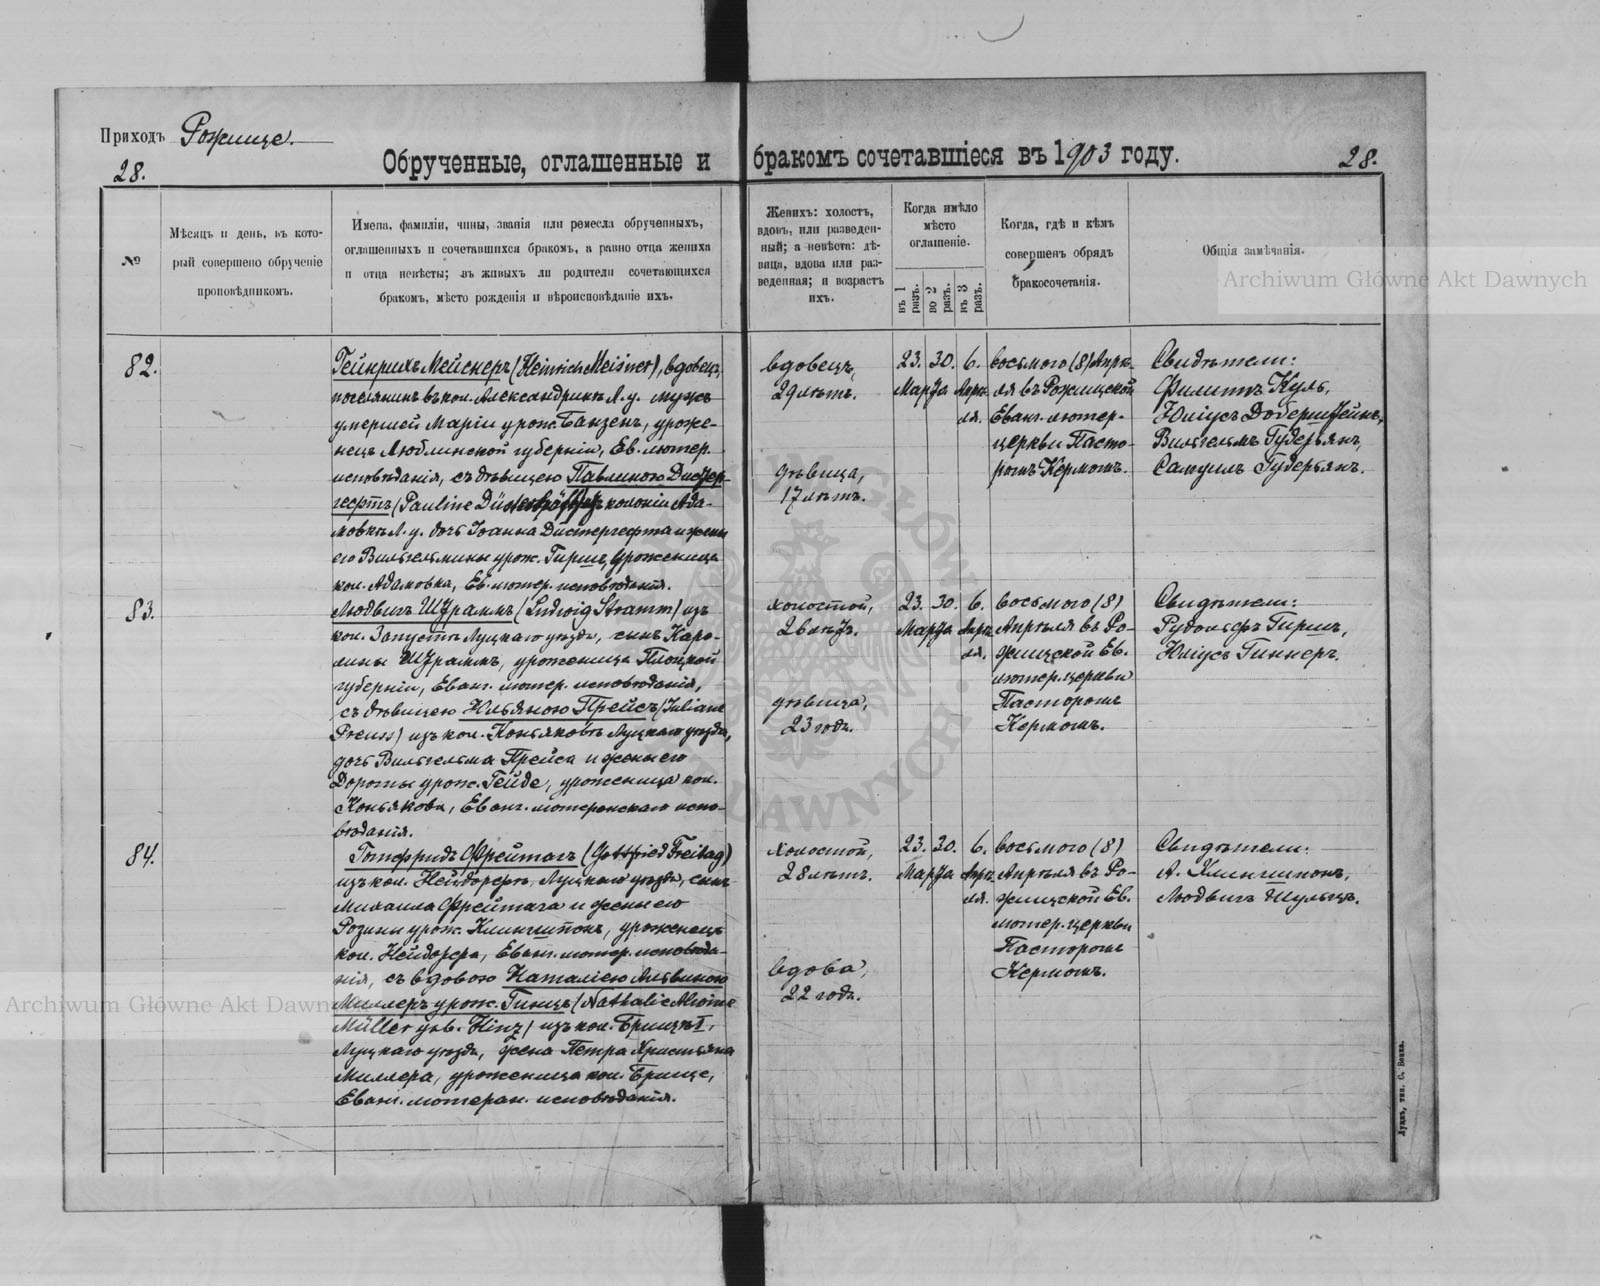 Приходъ Рожище.
28.
Обрученные, оглашенные и бракомъ сочетавшіеся въ 1903 году.
28.
№
Мѣсяцъ и день, въ кото-
рый совершено обрученіе
проповѣдникомъ.
Имена, фамиліи, чины, званія или ремесла обрученныхъ,
оглашенныхъ и сочетавшихся бракомъ, а равно отца жениха
и отца невѣсты; въ живыхъ ли родители сочетающихся
бракомъ, мѣсто рожденія и вѣроисповѣданіе ихъ.
Женихъ: холостъ,
вдовъ, или разведен-
ный; а невѣста: дѣ-
вица, вдова или раз-
веденная; и возрастъ
ихъ.
Когда имѣло
мѣсто
оглашеніе.
въ 1
разъ.
во 2
разъ.
въ 3
разъ.
Когда, гдѣ и кѣмъ
совершенъ обрядъ
бракосочетанія.
Общія замѣчанія.
82.
Гейнрихъ Мейснеръ (Heinrich Meisner), вдовецъ,
поселянинъ въ кол. Александринъ Л. у. мужъ
умершей Маріи урож. Банзенъ, уроже-
нецъ Люблинской губерніи, Ев. лютер.
исповѣданія, съ дѣвицею Павлиною Дистер-
гефтъ (Pauline колоніи Ада-
мовкѣ Л. у. дочь Іоанна Дистергефта и жены
его Вильгельмины урож. Гиршъ, уроженица
кол. Адамовка, Ев. лютер. исповѣданія.
вдовецъ,
29 лѣтъ.
дѣвица,
17 лѣтъ.
23. 30. 6.
Марта Апрѣ-
ля.
восьмого (8) Апрѣ-
ля въ Рожищской
Еванг. лютер.
церкви Пасто-
ромъ Кермомъ.
Свидѣтели:
Филиппъ Куль,
Юліусъ Доберштейнъ,
Вильгельмъ Гудерьянъ,
Самуилъ Гудерьянъ.
83.
Людвигъ Штраммъ (Ludwig Stramm) изъ
кол. Запустъ Луцкаго уѣзда, сынъ Каро-
лины Штраммъ, уроженица Плоцкой
губерніи, Еванг. лютер. исповѣданія,
съ дѣвицею Юльяною Прейсъ (Juliane
Preuss) изъ кол. Коньяковъ Луцкаго уѣзда,
дочь Вильгельма Прейса и жены его
Дороты урож. Гейде, уроженица кол.
Коньякова, Еванг. лютеранскаго испо-
вѣданія.
холостой,
26 лѣтъ.
дѣвица,
23 годъ.
23. 30. 6.
Марта Апрѣ-
ля.
восьмого (8)
Апрѣля въ Ро-
жищской Ев.
лютер. церкви
Пасторомъ
Кермомъ.
Свидѣтели:
Рудольфъ Гиршъ,
Юліусъ Гиннеръ.
84.
Готфридъ Фрейтагъ (Gottfried Freitag)
изъ кол. Нейдорфъ, Луцкаго уѣзда, сынъ
Михаила Фрейтага и жены его
Розины урож. Клингшпонъ, уроженецъ
кол. Нейдорфа, Еванг. лютер. исповѣда-
нія, съ вдовою Наталіею Альвиною
Миллеръ урож. Гинцъ (Nathalie Alwine
Müller geb. Hinz) изъ кол. Брищѣ I,
Луцкаго уѣзда, жена Петра Христьяна
Миллера, уроженица кол. Брище,
Еванг. лютеран. исповѣданія.
холостой,
28 лѣтъ.
вдова,
22 годъ.
23. 30. 6.
Марта Апрѣ-
ля.
восьмого (8)
Апрѣля въ Ро-
жищской Ев.
лютер. церкви
Пасторомъ
Кермомъ.
Свидѣтели:
А. Клингшпонъ,
Людвигъ Шульцъ.
Луцкъ, тип. С. Бенка.
Archiwum Główne Akt Dawnych
Archiwum Główne Akt Dawnych